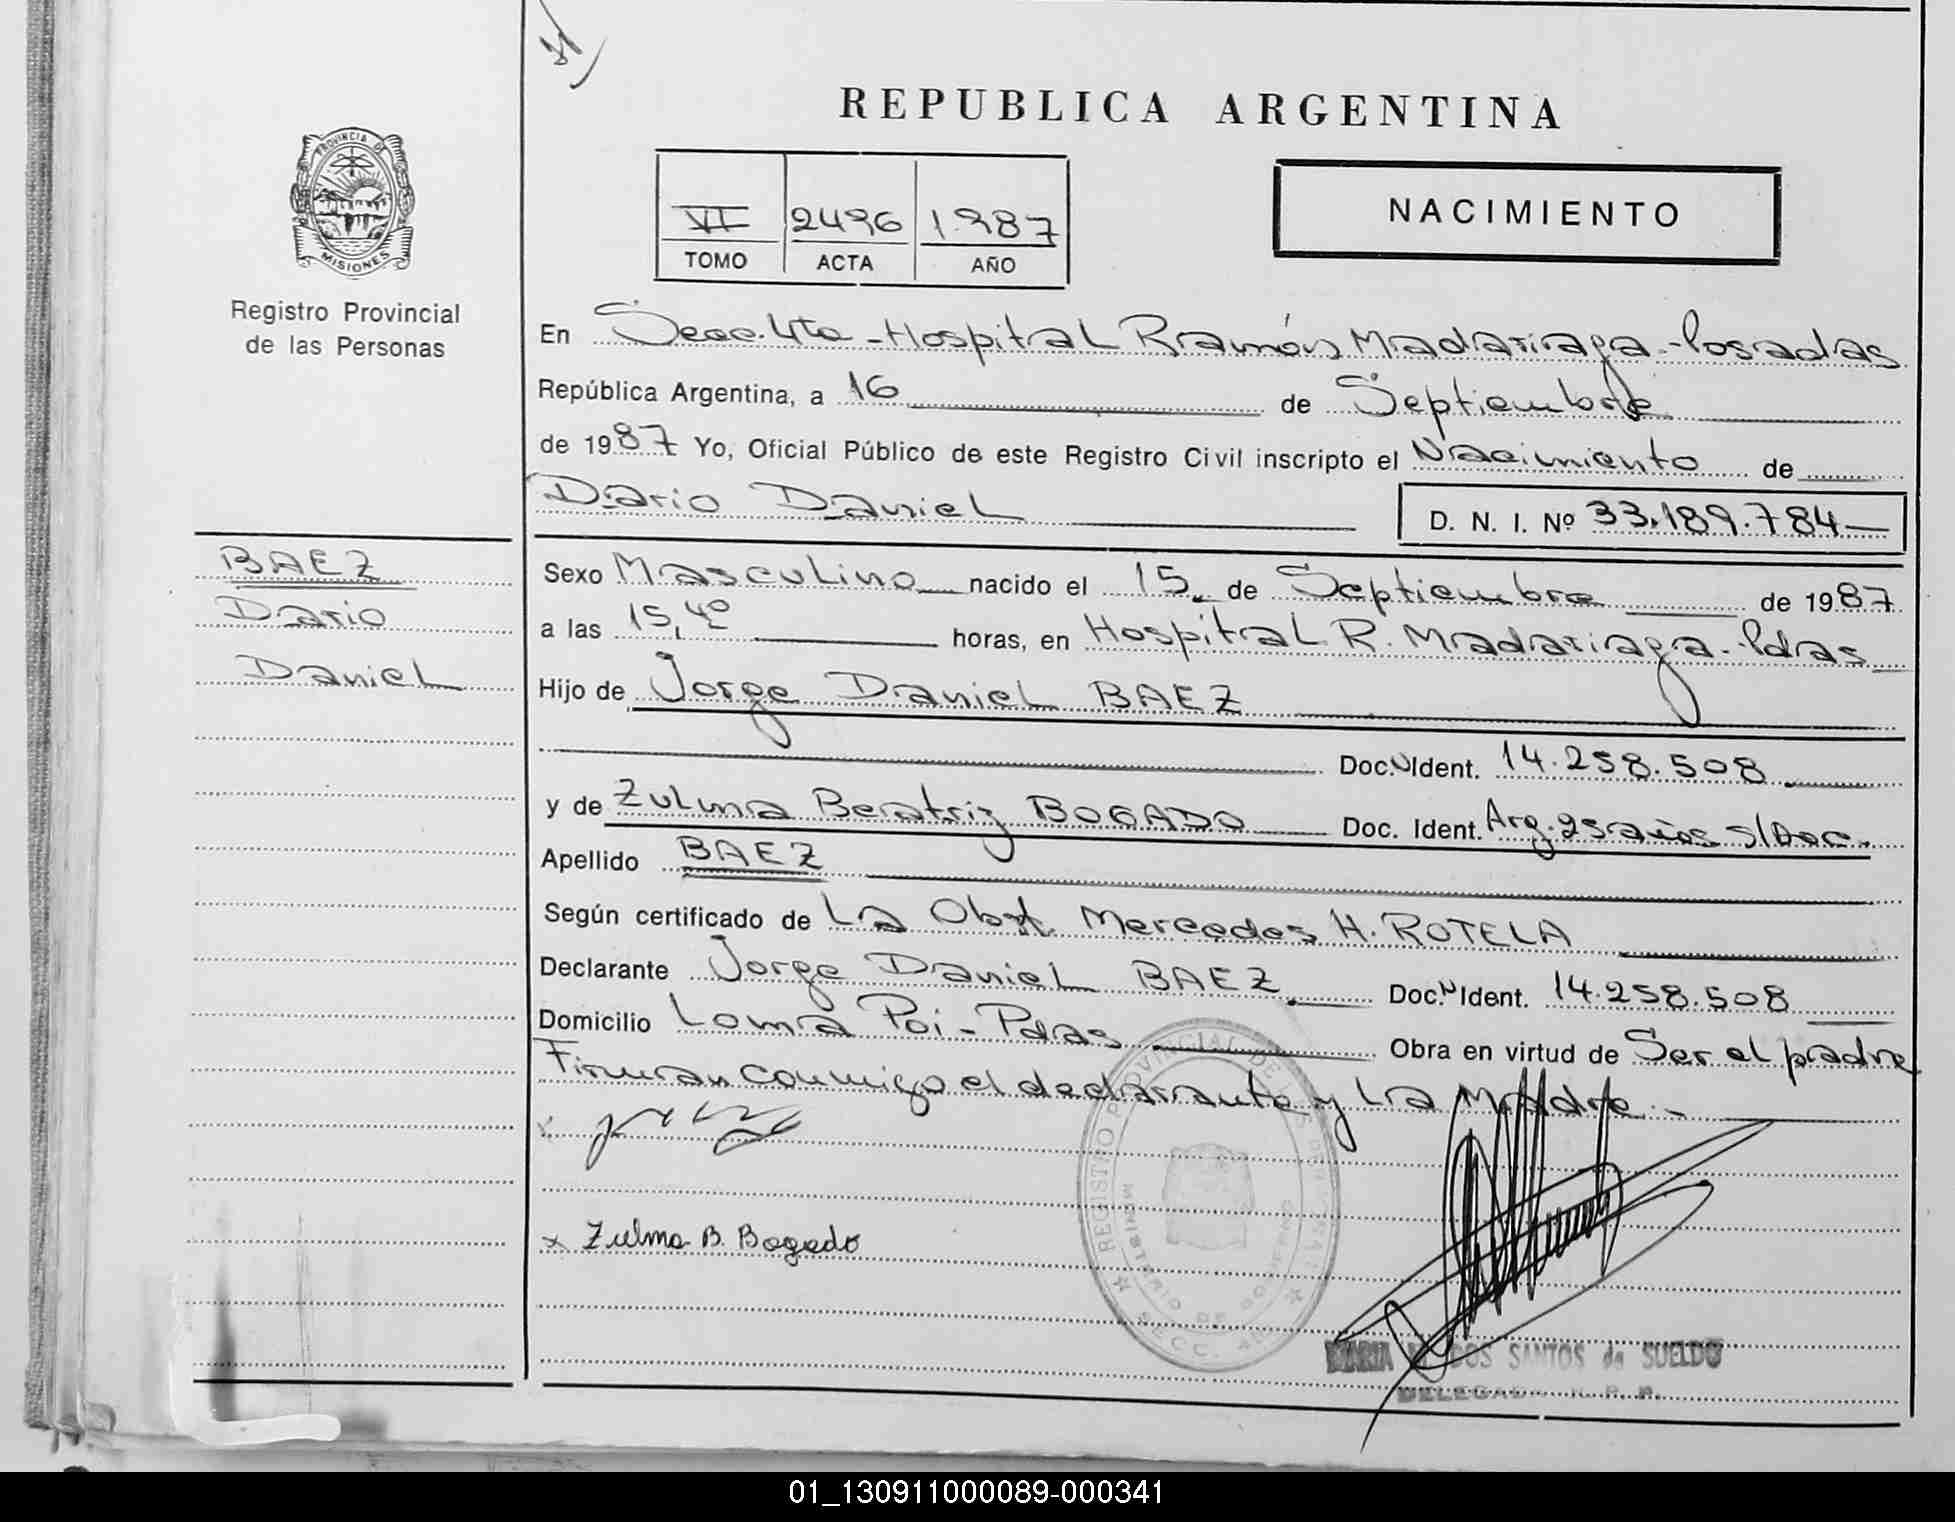 REPUBLICA ARGENTINA
PROVINCIA DE
MISIONES
Registro Provincial
de las Personas
VI 2496 1.987
TOMO ACTA AÑO
NACIMIENTO
En Secc. 4ta - Hospital Ramón Madariaga - Posadas
República Argentina, a 16 de Septiembre
de 1987 Yo, Oficial Público de este Registro Civil inscripto el Nacimiento de
Dario Daniel
D. N. I. Nº 33.189.784
BAEZ
Dario
Daniel
Sexo Masculino nacido el 15 de Septiembre de 1987
a las 15,40 horas, en Hospital R. Madariaga - Pdas
Hijo de Jorge Daniel BAEZ
Doc. N Ident. 14.258.508
y de Zulma Beatriz BOGADO Doc. Ident. Arg. 25 años s/Doc.
Apellido BAEZ
Según certificado de La Obst. Mercedes H. ROTELA
Declarante Jorge Daniel BAEZ Doc. N Ident. 14.258.508
Domicilio Loma Poi - Pdas Obra en virtud de Ser el padre
Firman conmigo el declarante y La Madre. -
x Zulma B. Bogado
REGISTRO PROVINCIAL DE LAS PERSONAS
MINISTERIO DE GOBIERNO
SECC. 4ta
MARIA DOS SANTOS de SUELDO
DELEGADA R. P. P.
01_130911000089-000341